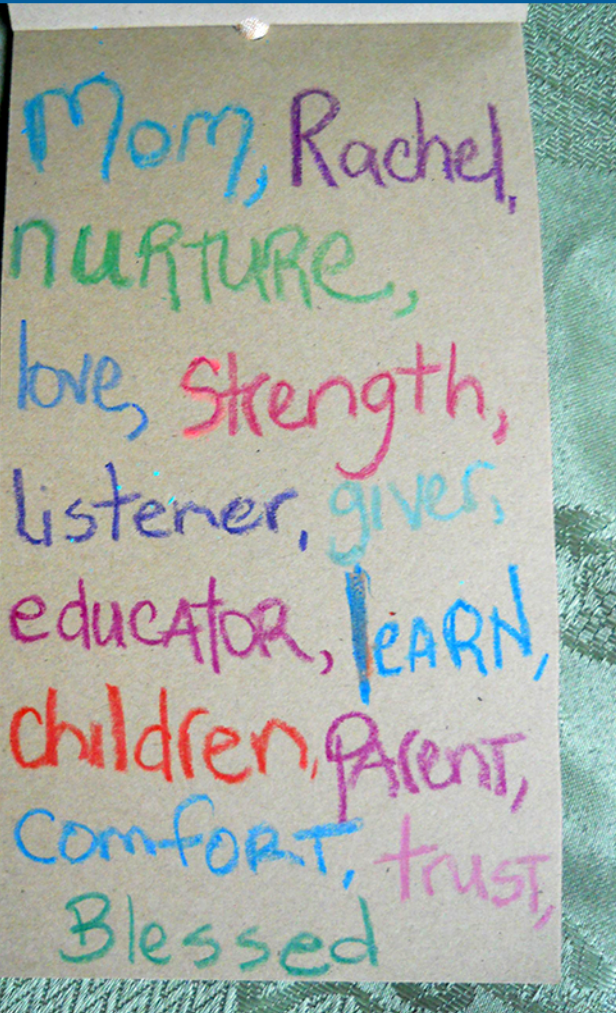 Mom, Rachel,
nuRTURe,
love, Strength,
listener, giver,
educAtoR, leARN,
children, PArenT,
comfoRT, trusT,
Blessed